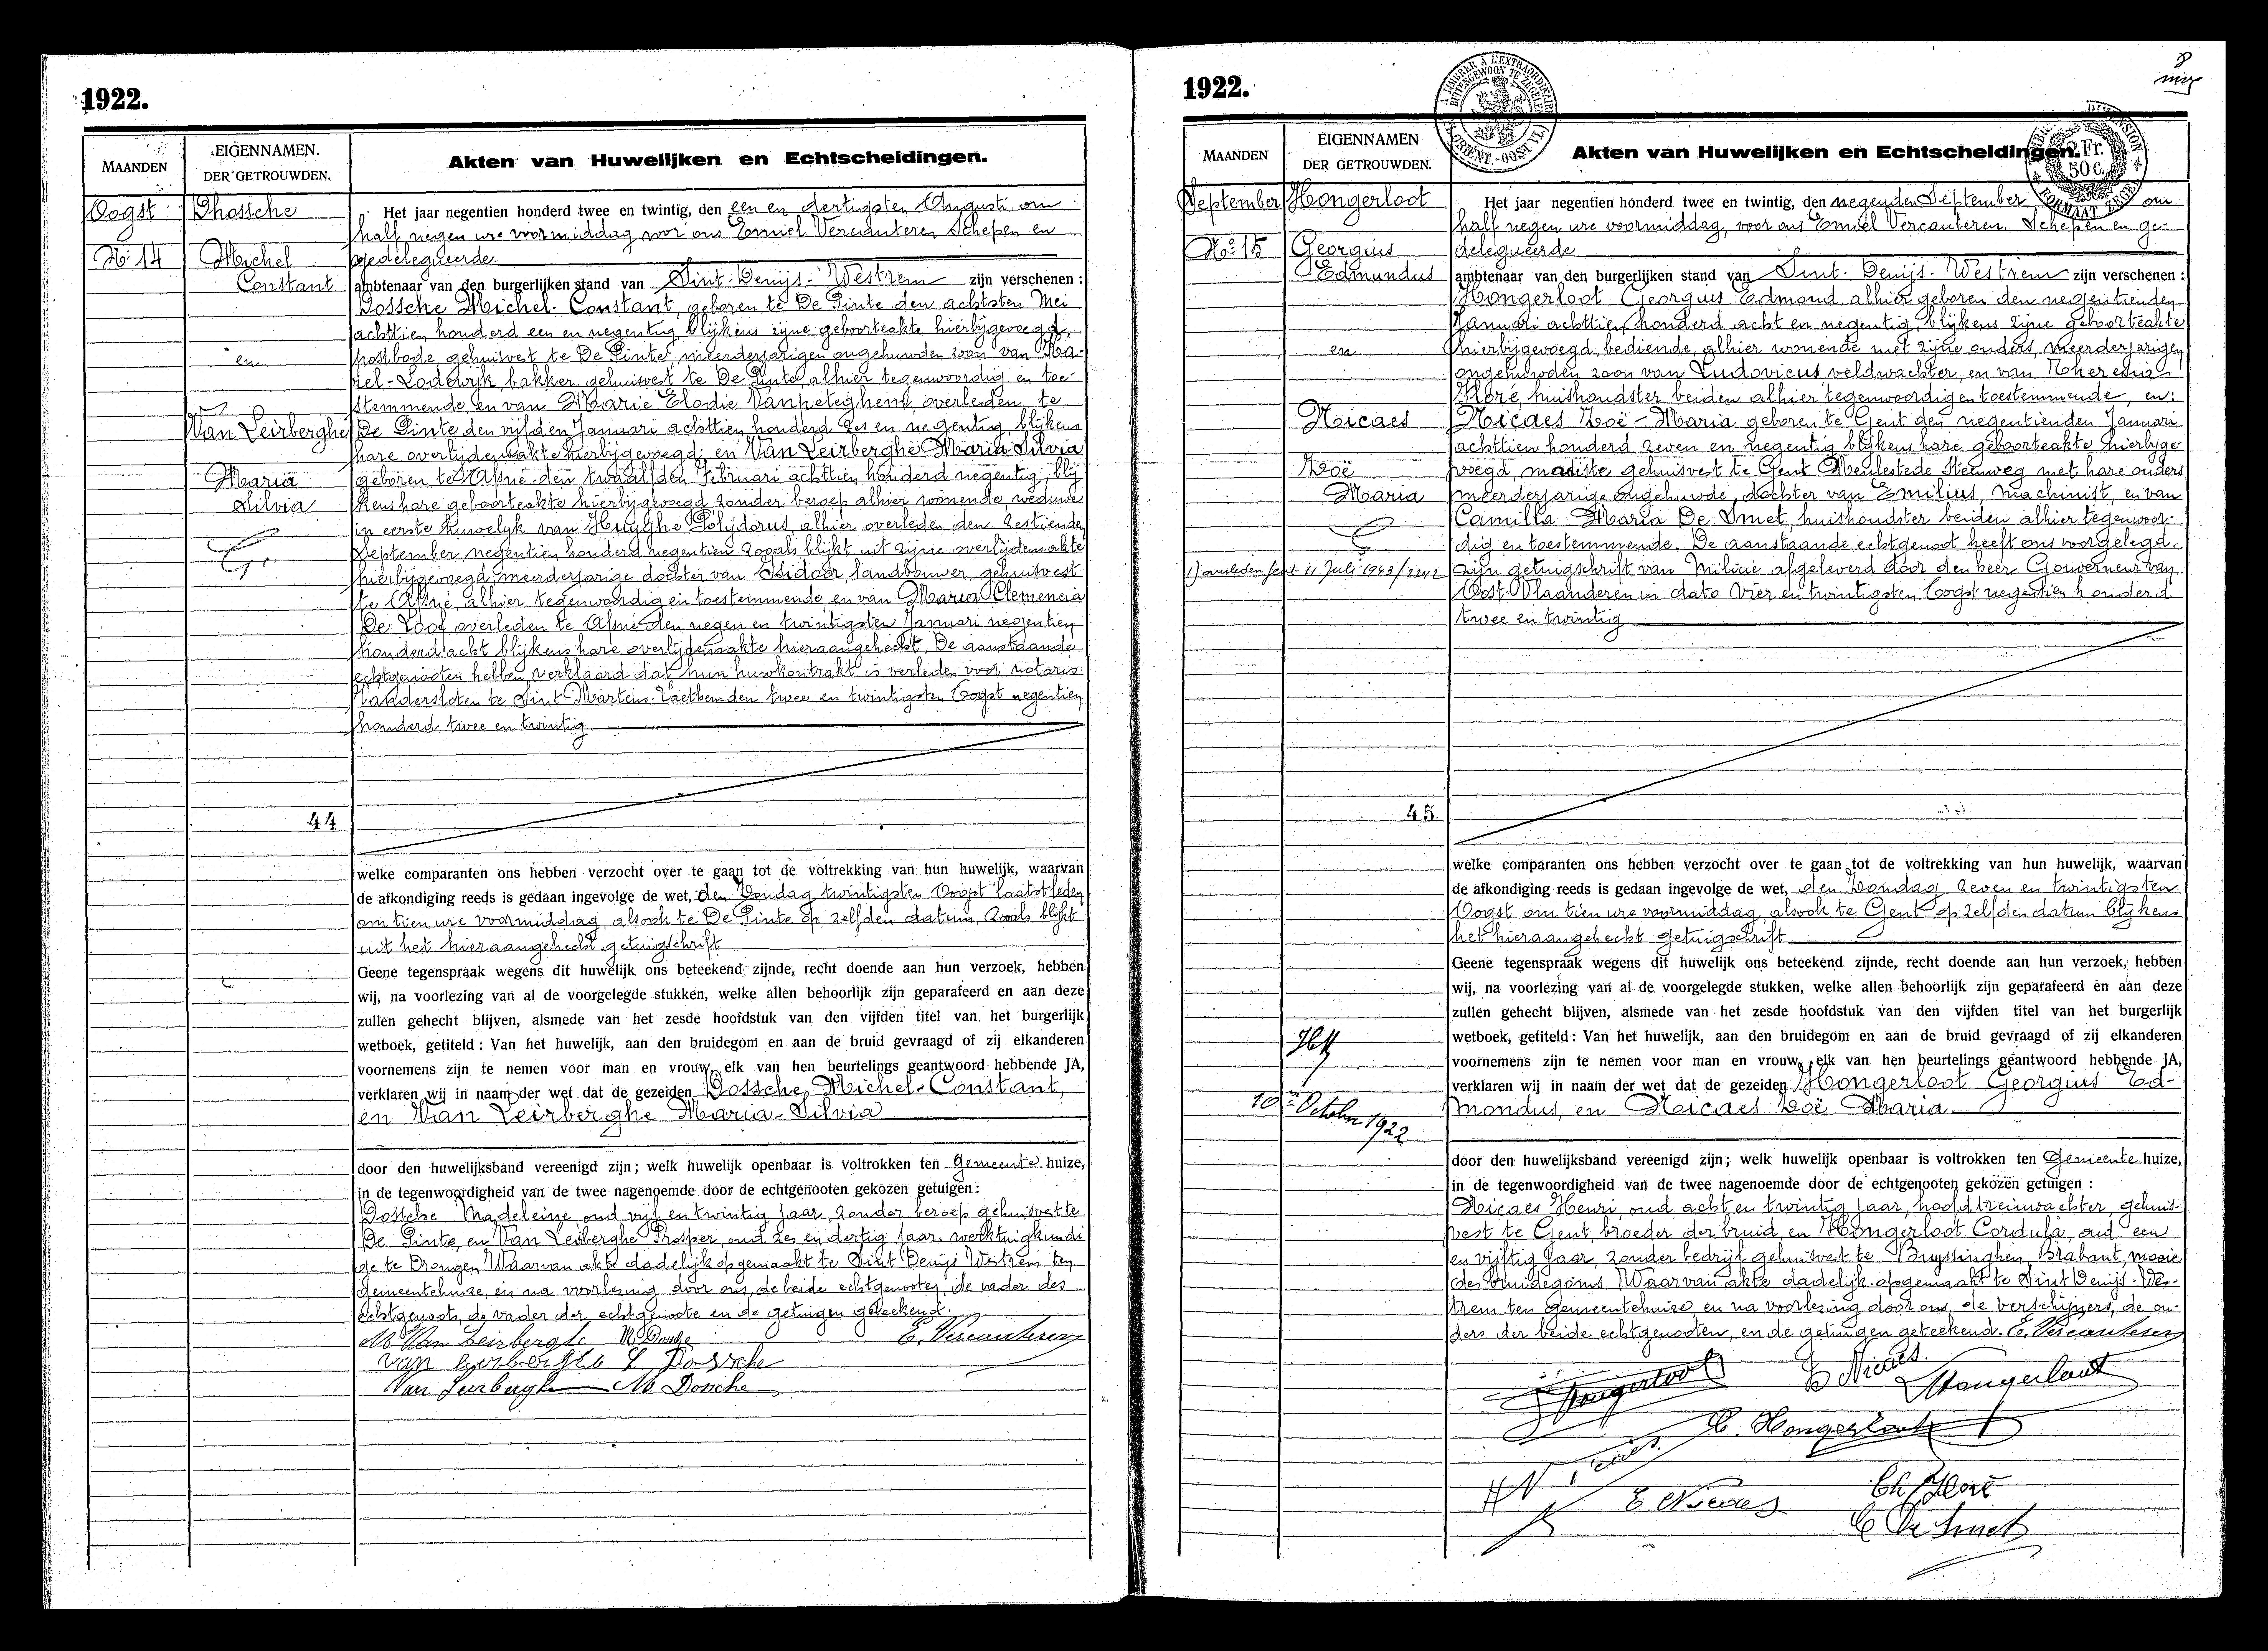 1922.
MAANDEN
EIGENNAMEN.
DER GETROUWDEN.
Akten van Huwelijken en Echtscheidingen.
Oogst
Dhossche
No 14
Michel
Constant
en
Van Leirberghe
Maria
Silvia
44
Het jaar negentien honderd twee en twintig, den een en dertigsten Augusti om
half negen ure voormiddag voor ons Emiel Vercauteren Schepen en
gedelegueerde
ambtenaar van den burgerlijken stand van Sint-Denijs-Westrem zijn verschenen :
Dossche Michel-Constant, geboren te De Pinte den achtsten Mei
achttien honderd een en negentig blijkens zijne geboorteakte hierbijgevoegd,
postbode, gehuisvest te De Pinte, meerderjarigen ongehuwden zoon van
Lodewijk, bakker, gehuisvest te De Pinte alhier tegenwoordig en toe-
stemmende en van Marie Elodie Vanpeteghem, overleden te
De Pinte den vijfden Januari achttien honderd zes en negentig, blijkens
hare overlijdensakte hierbijgevoegd; en Van Leirberghe Maria-Silvia
geboren te Afsné den twaalfden Februari achttien honderd negentig, blij
kens hare geboorteakte hierbijgevoegd zonder beroep alhier wonende, weduwe
in eerste huwelyk van Huyghe Polydorus, alhier overleden den zestiende
September negentien honderd negentien zooals blijkt uit zijne overlijdensakte
hierbijgevoegd, meerderjarige dochter van Isidoor, landbouwer, gehuisvest
te Afsné, alhier tegenwoordig en toestemmende en van Maria Clemencia
De Loof overleden te Afsné den negen en twintigsten Januari negentien
honderd acht blijkens hare overlijdensakte hieraangehecht. De aanstaande
echtgenooten hebben verklaard dat hun huwkontrakt is verleden voor notaris
Vandersloten te Sint Martens-Laethem den twee en twintigsten Oogst negentien
honderd twee en twintig
welke comparanten ons hebben verzocht over te gaan tot de voltrekking van hun huwelijk, waarvan
de afkondiging reeds is gedaan ingevolge de wet, den Zondag twintigsten Oogst laatstleden
om tien ure voormiddag, alsook te De Pinte op zelfden datum, zooals blijkt
uit het hieraangehecht getuigschrift
Geene tegenspraak wegens dit huwelijk ons beteekend zijnde, recht doende aan hun verzoek, hebben
wij, na voorlezing van al de voorgelegde stukken, welke allen behoorlijk zijn geparafeerd en aan deze
zullen gehecht blijven, alsmede van het zesde hoofdstuk van den vijfden titel van het burgerlijk
wetboek, getiteld : Van het huwelijk, aan den bruidegom en aan de bruid gevraagd of zij elkanderen
voornemens zijn te nemen voor man en vrouw, elk van hen beurtelings geantwoord hebbende JA,
verklaren wij in naam der wet dat de gezeiden Dossche Michel-Constant,
en Van Leirberghe Maria-Silvia
door den huwelijksband vereenigd zijn; welk huwelijk openbaar is voltrokken ten Gemeente huize,
in de tegenwoordigheid van de twee nagenoemde door de echtgenooten gekozen getuigen :
Dossche Madeleine oud vijf en twintig jaar, zonder beroep gehuisvest te
De Pinte, en Van Leirberghe Prosper, oud zes en dertig jaar, werktuigkundi
ge te Drongen. Waarvan akte dadelijk opgemaakt te Sint Denijs Westrem ten
gemeentehuize, en na voorlezing door ons, de beide echtgenooten, de vader des
echtgenoots, de vader der echtgenoote en de getuigen geteekend.
M Van Leirberghe M Dossche E. Vercauteren
Van Leirberghe L Dossche
Van Leirberghe M Dossche
1922.
MAANDEN
EIGENNAMEN
DER GETROUWDEN.
Akten van Huwelijken en Echtscheidingen.
2 Fr.
50 c.
FORMAAT ZEGEL
September
Hongerloot
No 15
Georgius
Edmundus
en
Nicaes
Zoë
Maria
1) overleden Gent 11 Juli 1943/2242
10n October 1922
45.
Het jaar negentien honderd twee en twintig, den negenden September om
half negen ure voormiddag, voor ons Emiel Vercauteren, Schepen en ge-
delegueerde
ambtenaar van den burgerlijken stand van Sint-Denijs-Westrem zijn verschenen :
Hongerloot Georgius Edmond, alhier geboren den negentienden
Januari achttien honderd acht en negentig, blijkens zijne geboorteakte
hierbijgevoegd, bediende, alhier wonende met zijne ouders, meerderjarigen
ongehuwden zoon van Ludovicus veldwachter, en van Theresia
Floré, huishoudster beiden alhier tegenwoordig en toestemmende, en:
Nicaes Zoë-Maria geboren te Gent den negentienden Januari
achttien honderd zeven en negentig blijkens hare geboorteakte hierbyge-
voegd, modiste gehuisvest te Gent Meulestede Steenweg met hare ouders
meerderjarige ongehuwde, dochter van Emilius, machinist, en van
Camilla Maria De Smet, huishoudster beiden alhier tegenwoor-
dig en toestemmende. De aanstaande echtgenoot heeft ons voorgelegd
zijn getuigschrift van Milicie afgeleverd door den heer Gouverneur van
Oost-Vlaanderen in dato vier en twintigsten Oogst negentien honderd
twee en twintig
welke comparanten ons hebben verzocht over te gaan tot de voltrekking van hun huwelijk, waarvan
de afkondiging reeds is gedaan ingevolge de wet, den Zondag zeven en twintigsten
Oogst om tien ure voormiddag alsook te Gent op zelfden datum blijkens
het hieraangehecht getuigschrift
Geene tegenspraak wegens dit huwelijk ons beteekend zijnde, recht doende aan hun verzoek, hebben
wij, na voorlezing van al de voorgelegde stukken, welke allen behoorlijk zijn geparafeerd en aan deze
zullen gehecht blijven, alsmede van het zesde hoofdstuk van den vijfden titel van het burgerlijk
wetboek, getiteld : Van het huwelijk, aan den bruidegom en aan de bruid gevraagd of zij elkanderen
voornemens zijn te nemen voor man en vrouw, elk van hen beurtelings geantwoord hebbende JA,
verklaren wij in naam der wet dat de gezeiden Hongerloot Georgius Ed-
mondus, en Nicaes Zoë Maria
door den huwelijksband vereenigd zijn; welk huwelijk openbaar is voltrokken ten Gemeente huize,
in de tegenwoordigheid van de twee nagenoemde door de echtgenooten gekozen getuigen :
Nicaes Henri, oud acht en twintig jaar, hoofdtreinwachter, gehuis-
vest te Gent, broeder der bruid, en Hongerloot Cordula, oud een
en vijftig jaar, zonder bedrijf gehuisvest te Buyssinghen, Brabant, moeie
des bruidegoms. Waarvan akte dadelijk opgemaakt te Sint Denijs-Wes-
trem ten gemeentehuize, en na voorlezing door ons, de verschijners, de ou-
ders der beide echtgenooten, en de getuigen geteekend. E. Vercauteren
Hongerloot Z Nicaes. Hongerloot
C. Hongerloot
H Nicaes.
E Nicaes Th Floré
C De Smet